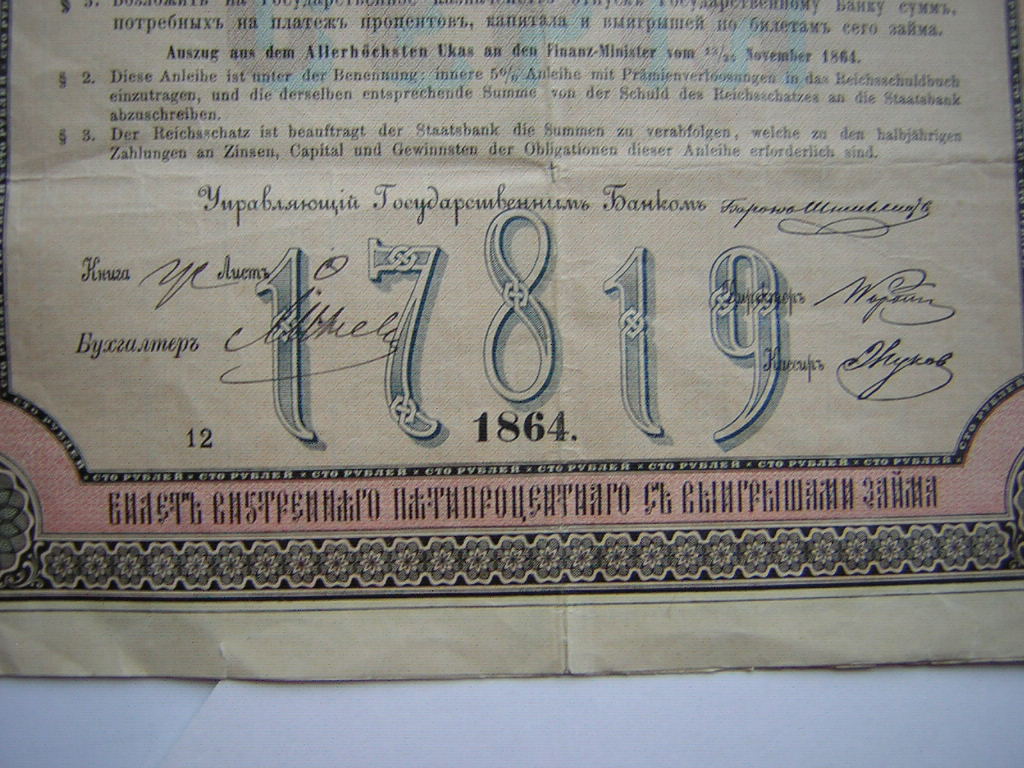 § 3. Возложить на Государственное казначейство отпускъ Государственному Банку суммъ,
потребныхъ на платежъ процентовъ, капитала и выигрышей по билетамъ сего займа.
Auszug aus dem Allerhöchsten Ukas an den Finanz-Minister vom 13/25 November 1864.
§ 2. Diese Anleihe ist unter der Benennung: innere 5% Anleihe mit Prämienverloosungen in das Reichsschuldbuch
einzutragen, und die derselben entsprechende Summe von der Schuld des Reichsschatzes an die Staatsbank
abzuschreiben.
§ 3. Der Reichsschatz ist beauftragt der Staatsbank die Summen zu verabfolgen, welche zu den halbjährigen
Zahlungen an Zinsen, Capital und Gewinnsten der Obligationen dieser Anleihe erforderlich sind.
Управляющій Государственнымъ Банкомъ
Книга Листъ
Директоръ
Бухгалтеръ
Кассиръ
17819
12
1864.
СТО РУБЛЕЙ × СТО РУБЛЕЙ × СТО РУБЛЕЙ × СТО РУБЛЕЙ × СТО РУБЛЕЙ × СТО РУБЛЕЙ × СТО РУБЛЕЙ × СТО РУБЛЕЙ
БИЛЕТЪ ВНУТРЕННЯГО ПЯТИПРОЦЕНТНАГО СЪ ВЫИГРЫШАМИ ЗАЙМА